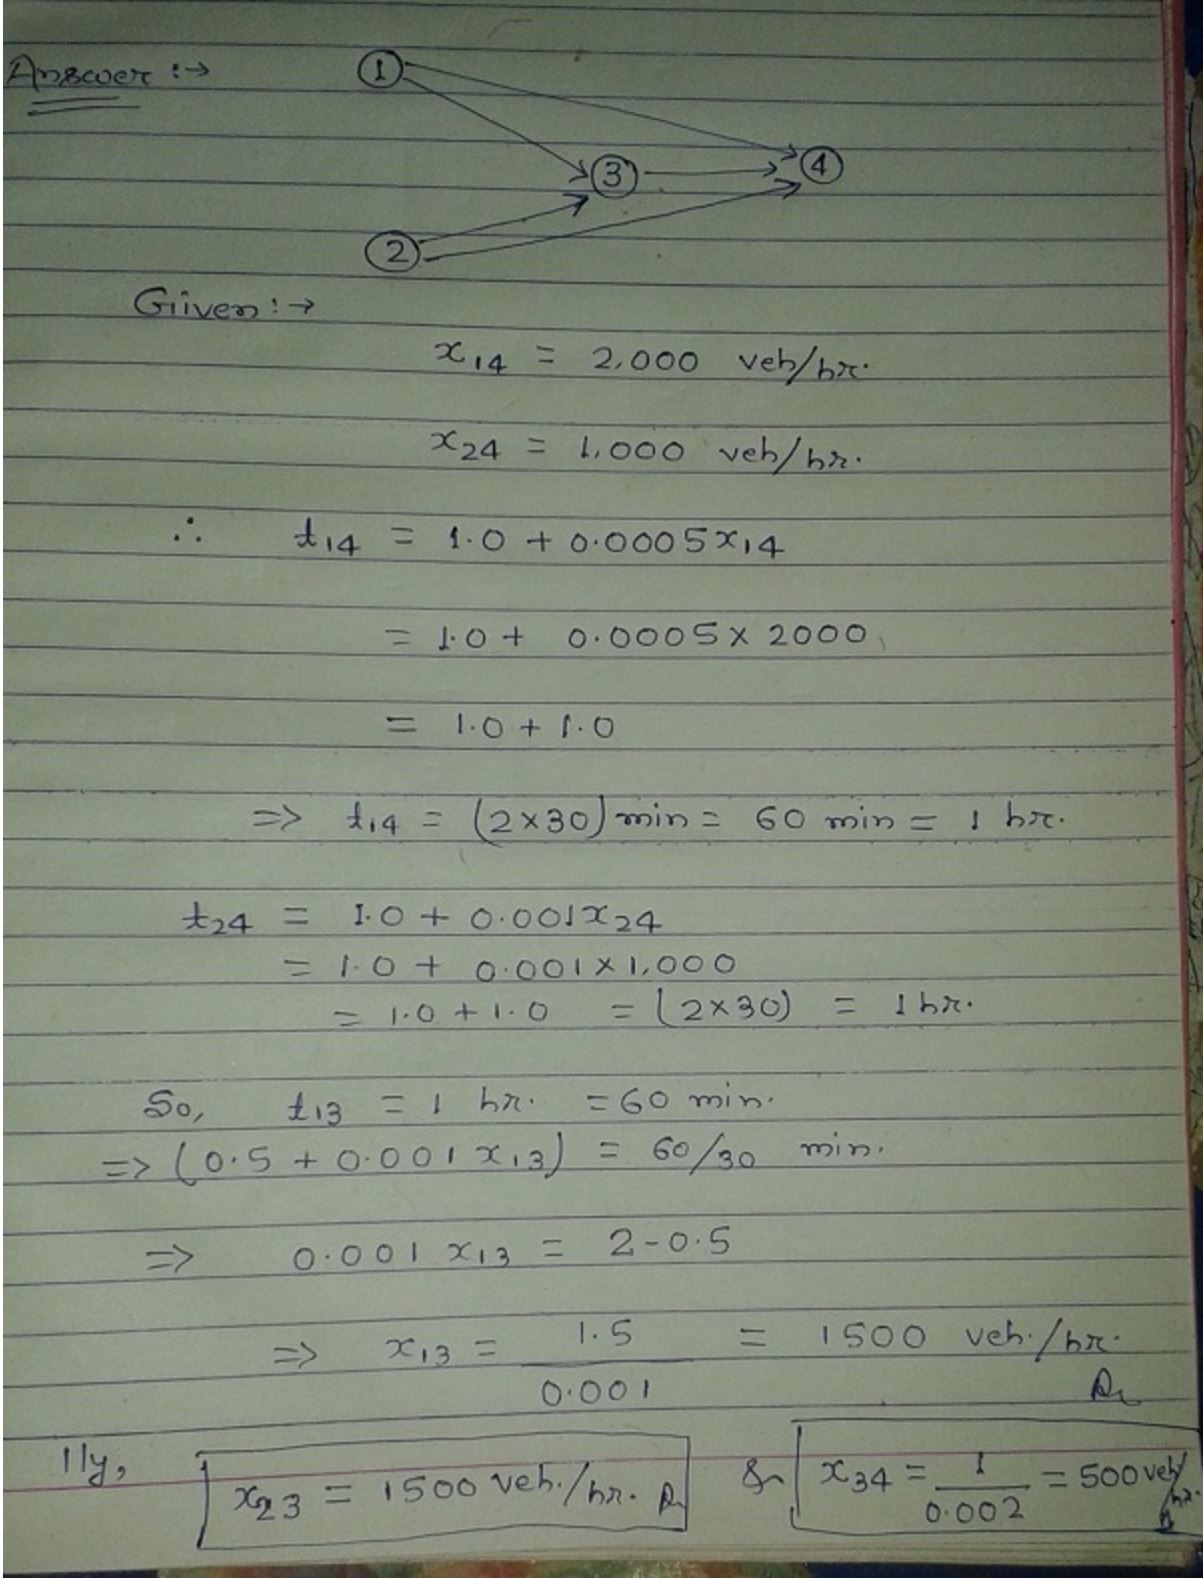 Answer :→
1
3
4
2
Given :→
x14 = 2,000 veh/hr.
x24 = 1,000 veh/hr.
∴ t14 = 1.0 + 0.0005x14
= 1.0 + 0.0005 × 2000
= 1.0 + 1.0
=> t14 = (2×30) min = 60 min = 1 hr.
t24 = 1.0 + 0.001x24
= 1.0 + 0.001×1,000
= 1.0 + 1.0 = (2×30) = 1 hr.
So, t13 = 1 hr. = 60 min.
=> (0.5 + 0.001 x13) = 60/30 min.
=> 0.001 x13 = 2-0.5
=> x13 = 1.5 / 0.001 = 1500 veh./hr.
lly, x23 = 1500 veh./hr. & x34 = 1 / 0.002 = 500 veh/hr.